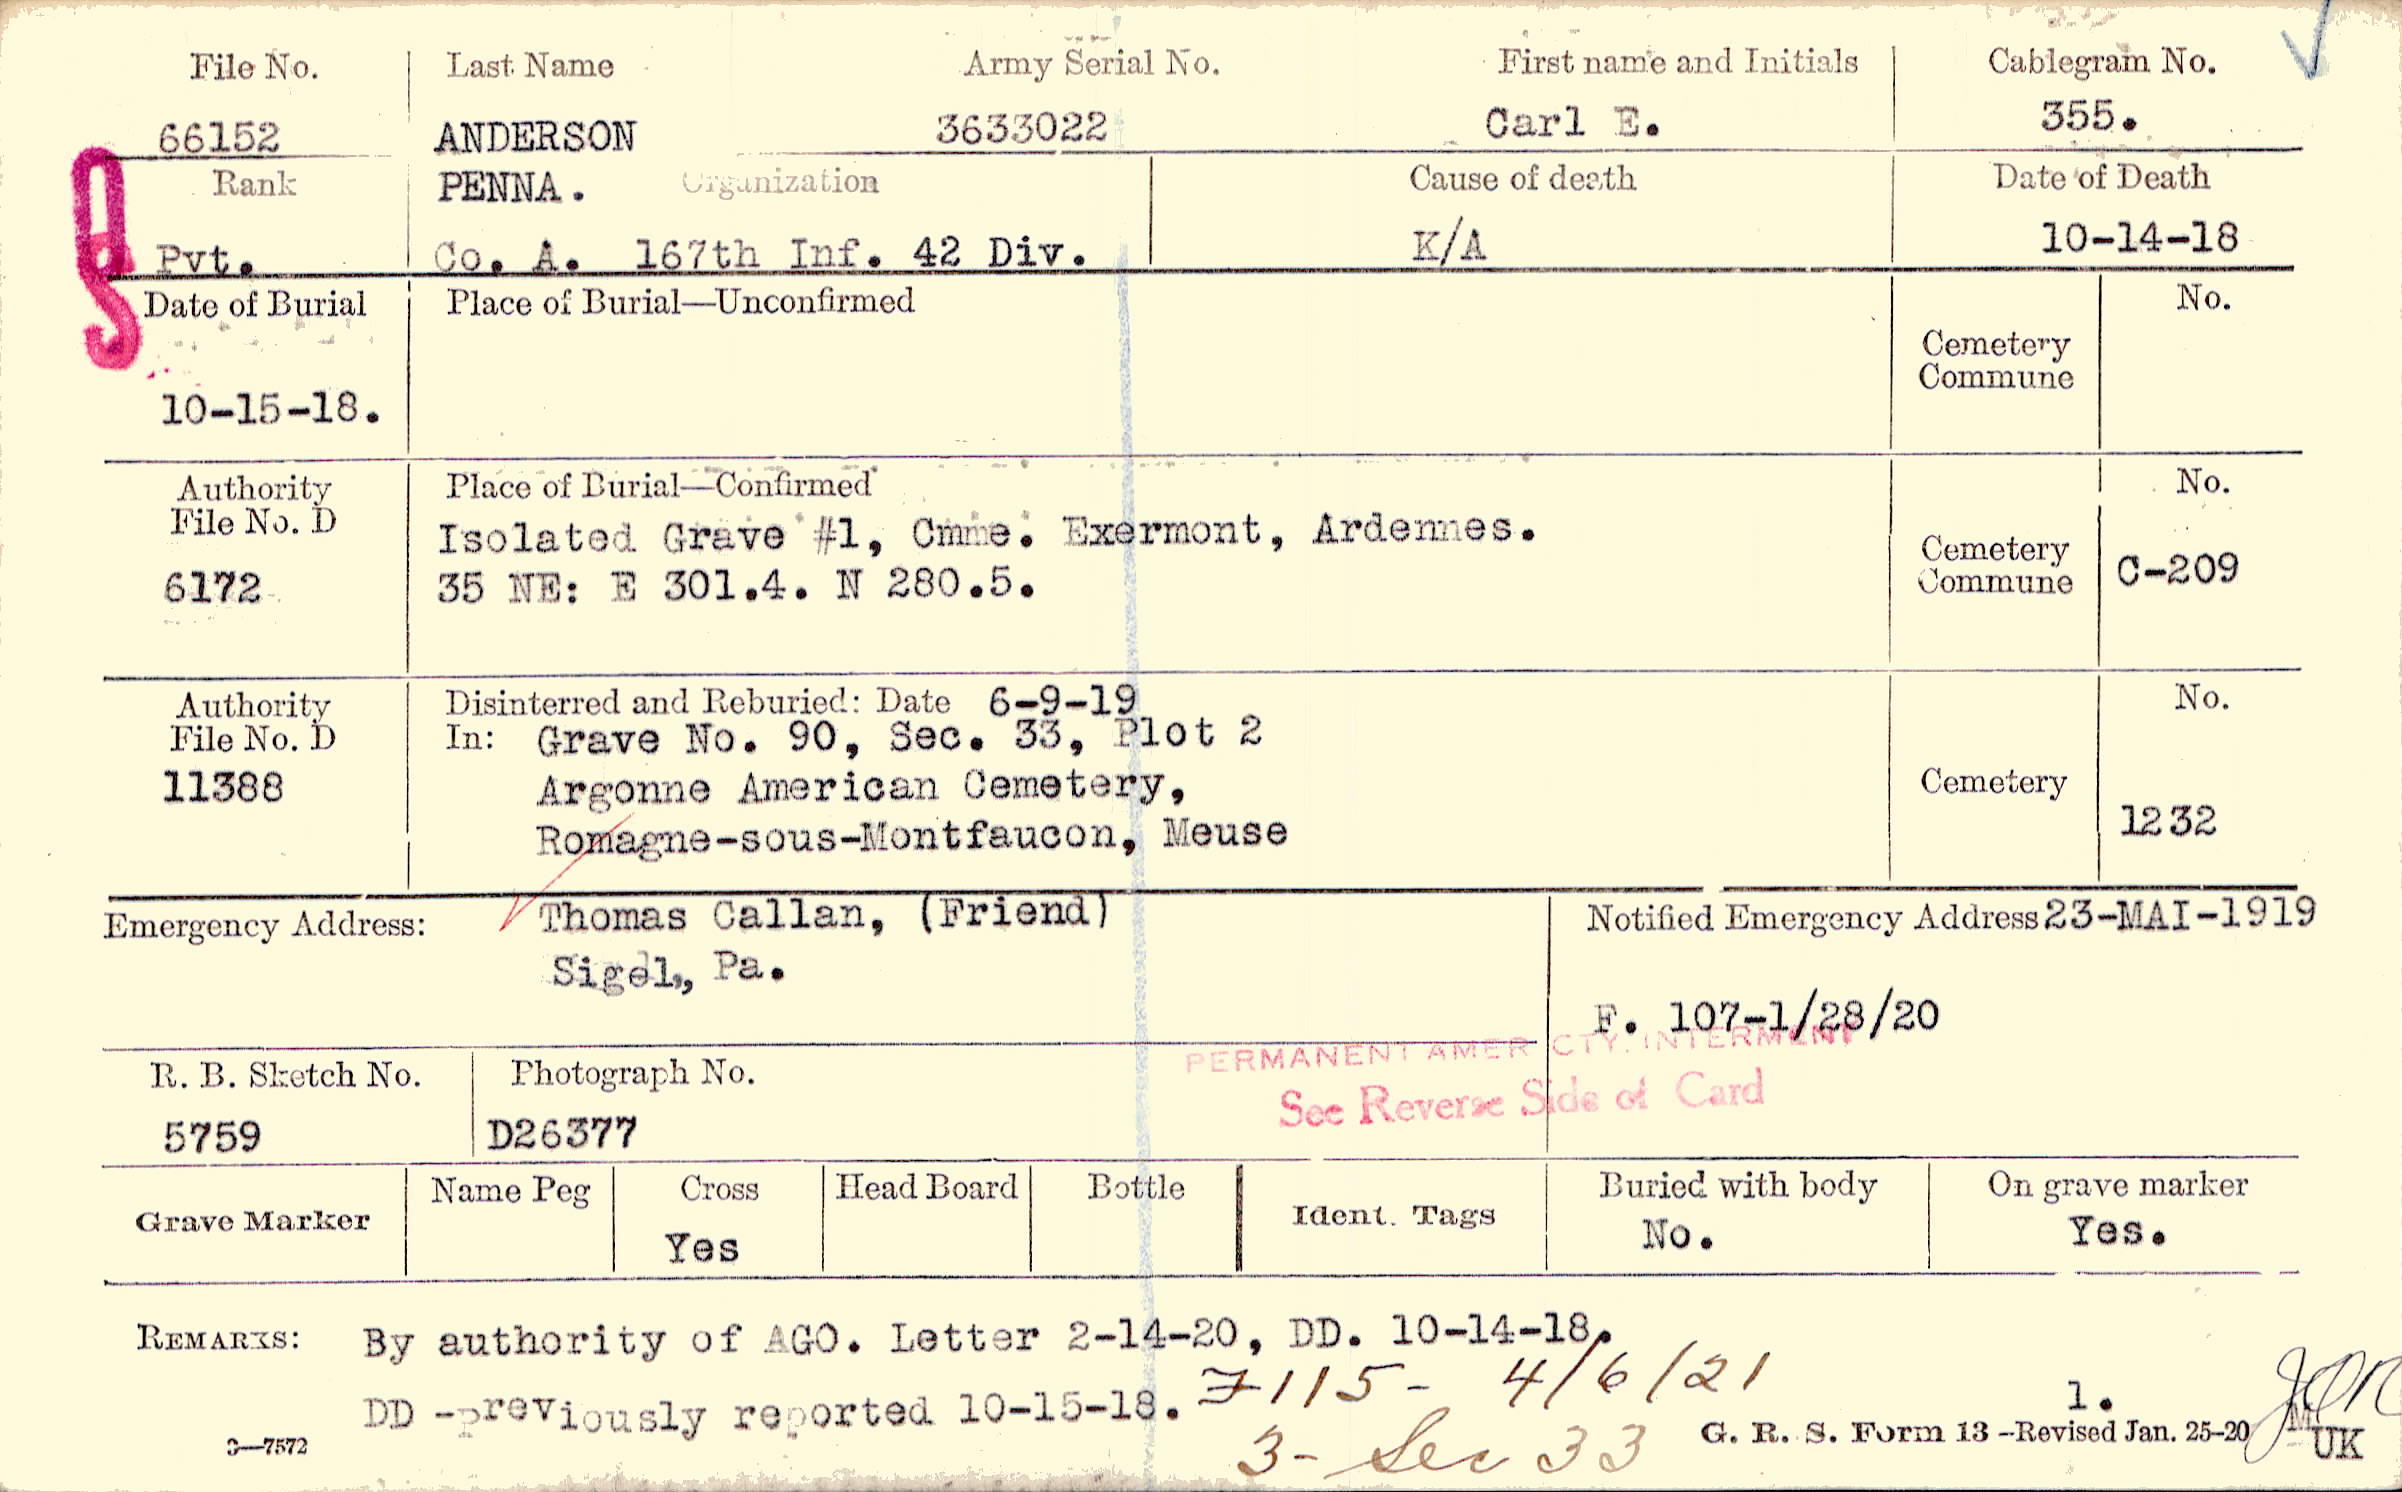 File No. Last Name Army Serial No. First name and Initials Cablegram No.
66152 ANDERSON 3633022 Carl E. 355.
Rank PENNA. Organization Cause of death Date of Death
Pvt. Co. A. 167th Inf. 42 Div. K/A 10-14-18
Date of Burial Place of Burial—Unconfirmed No.
Cemetery
Commune
10-15-18.
Authority Place of Burial—Confirmed No.
File No. D Isolated Grave #1, Cmne. Exermont, Ardennes.
6172 35 NE: E 301.4. N 280.5. Cemetery
Commune C-209
Authority Disinterred and Reburied: Date 6-9-19 No.
File No. D In: Grave No. 90, Sec. 33, Plot 2
11388 Argonne American Cemetery, Cemetery
Romagne-sous-Montfaucon, Meuse 1232
Emergency Address: Thomas Callan, (Friend) Notified Emergency Address 23-MAI-1919
Sigel, Pa.
F. 107-1/28/20
PERMANENT AMER CTY. INTERMENT
See Reverse Side of Card
R. B. Sketch No. Photograph No.
5759 D26377
Grave Marker Name Peg Cross Head Board Bottle Ident. Tags Buried with body On grave marker
Yes No. Yes.
REMARKS: By authority of AGO. Letter 2-14-20, DD. 10-14-18.
DD -previously reported 10-15-18. F115- 4/6/21 1.
3—7572 3- Sec 33 G. R. S. Form 13 -Revised Jan. 25-20 M
UK